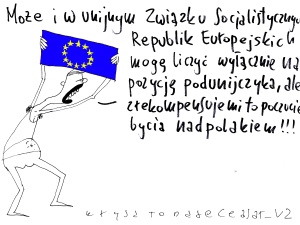 Może i w unijnym Związku Socjalistycznych
Republik Europejskich
mogą liczyć wyłącznie na
pozycję podunijczyka, ale
zrekompensuje mi to poczucie
bycia nadpolakiem!!!